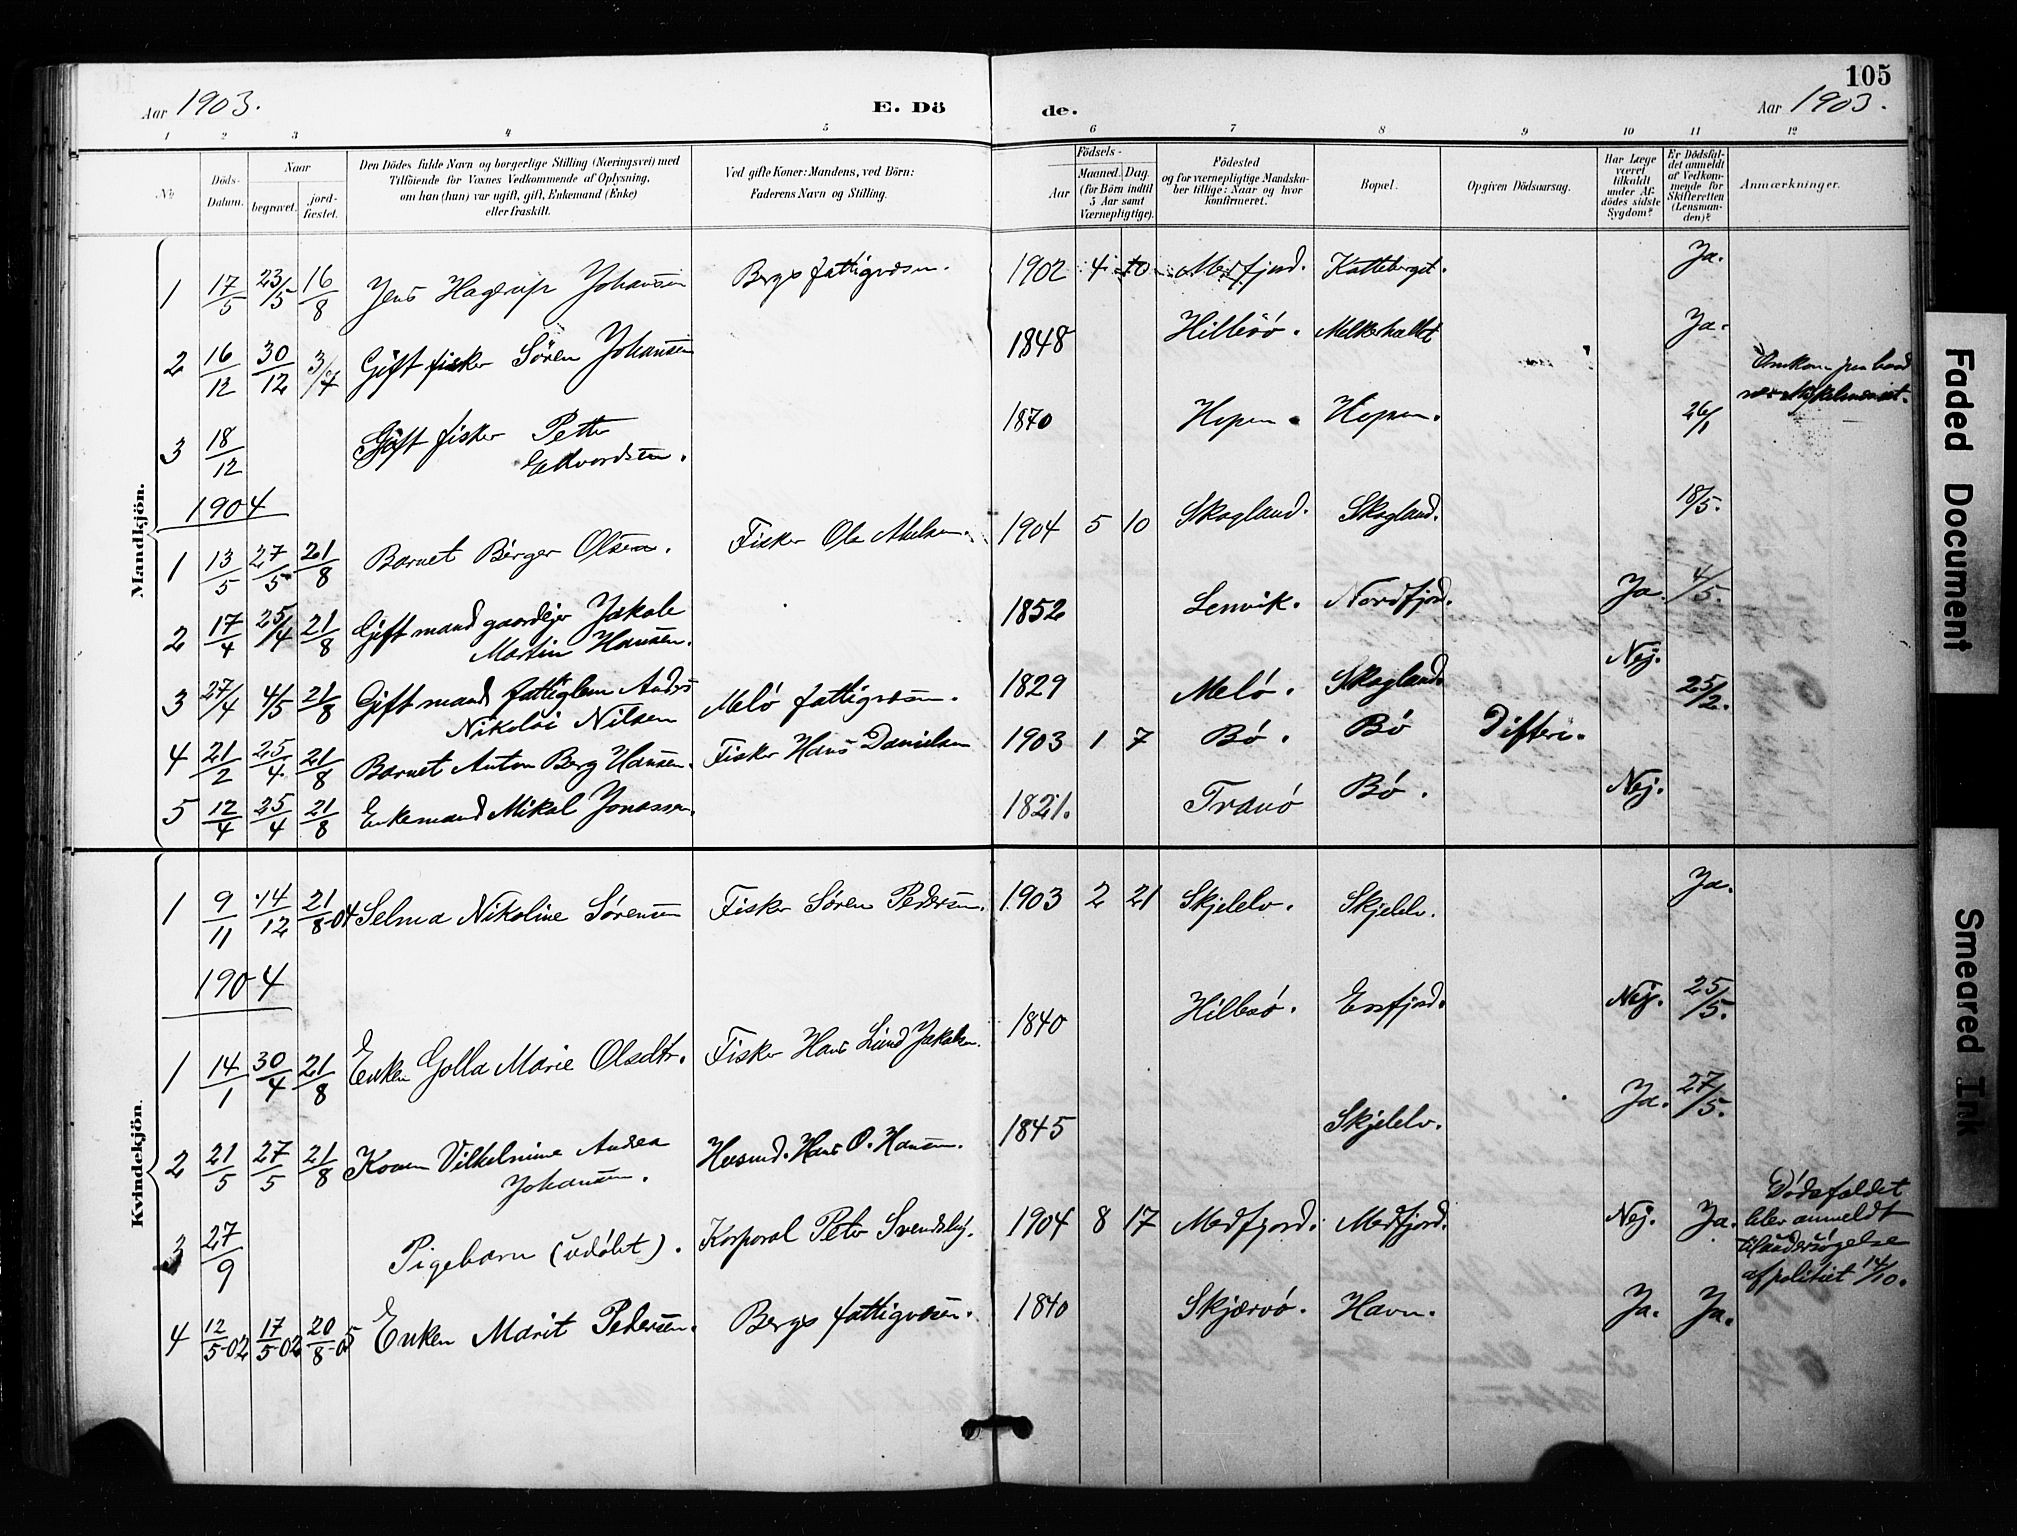 105
Aar 1903.
E. Dö
de.
Aar 1903.
1 2 3 4 5 6 7 8 9 10 11 12
No
Döds-
Datum.
Naar
begravet.
jord-
fæstet.
Den Dödes fulde Navn og borgerlige Stilling (Næringsvei) med
Tilföiende for Voxnes Vedkommende af Oplysning,
om han (hun) var ugift, gift, Enkemand (Enke)
eller fraskilt.
Ved gifte Koner: Mandens, ved Börn:
Faderens Navn og Stilling.
Födsels-
Aar
Maaned.
Dag.
(for Börn indtil
5 Aar samt
Værnepligtige).
Födested
og for værnepligtige Mandska-
ber tillige: Naar og hvor
konfirmeret.
Bopæl.
Opgiven Dödsaarsag.
Har Læge
været
tilkaldt
under Af-
dödes sidste
Sygdom?
Er Dödsfal-
det anmeldt
af Vedkom-
mende for
Skifteretten
(Lensman-
den)?
Anmærkninger.
Mandkjön.
1 17/5 23/5 16/8 Jens Hagerup Johansen Bergs fattigvæsen. 1902 4 10 Medfjord. Katteberget. Ja.
2 16/12 30/12 3/4 Gift fisker Sören Johansen 1848 Hillesö. Ja.
3 18/12 Gift fisker Petter
Edvardsen. 1870 Hopen. Hopen. 26/1
1904
1 13/5 27/5 21/8 Barnet Birger Olsen. Fisker Ole 1904 5 10 Skogland. Skogland. 18/5.
2 17/4 25/4 21/8 Gift mand gaardejer Jakob
Martin Hansen. 1852 Lenvik. Nordfjord. Ja. 4/5.
3 27/4 4/5 21/8 Gift mand fattiglem Anders
Nikolai Nilsen Melö fattigvæsen. 1829 Melö. Skogland. Nej.
4 21/2 25/4 21/8 Barnet Anton Berg Hansen. Fisker Hans Danielsen 1903 1 7 Bö. Bö Difteri. 25/2.
5 12/4 25/4 21/8 Enkemand Mikal Jonassen. 1821. Tranö Bö. Nej.
Kvindekjön.
1 9/11 14/12 21/8-04 Selma Nikoline Sörensen Fisker Sören Pedersen. 1903 2 21 Skjelelv. Skjelelv. Ja.
1904
1 14/1 30/4 21/8 Enken Golla Marie Olsdtr. Fisker Hans Lund Jakobsen. 1840 Hillesö. Ersfjord. Nej. 25/5.
2 21/5 27/5 21/8 Konen Vilhelmine Andrea
Johansen. Husmd. Hans O. Hansen. 1845 Skjelelv. Ja. 27/5.
3 27/9 Pigebarn (udöbt). Korporal Peter 1904 8 17 Medfjord. Medfjord. Nej. Ja.
Dödsfaldet
blev anmeldt
til undersögelse
af politiet 14/10.
4 12/5-02 17/5-02 20/8-05 Enken Marit Pedersen. Bergs fattigvæsen. 1840 Skjærvö. Havn. Ja. Ja.
Faded Document
Smeared Ink